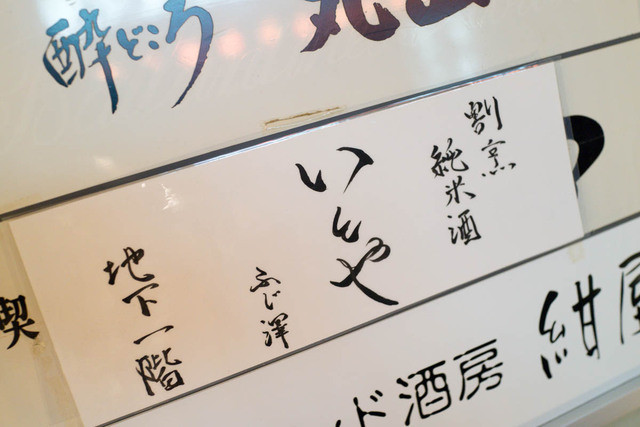 酔どころ
割烹
純米酒
いとや
ふじ澤
地下一階
喫
ド酒房
紺屋